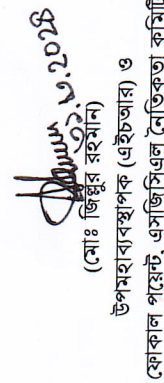 ৩১.১২.২০২৪
(মোঃ জিল্লুর রহমান)
উপমহাব্যবস্থাপক (এইচআর) ও
ফোকাল পয়েন্ট, এসজিসিএল নৈতিকতা কমিটি